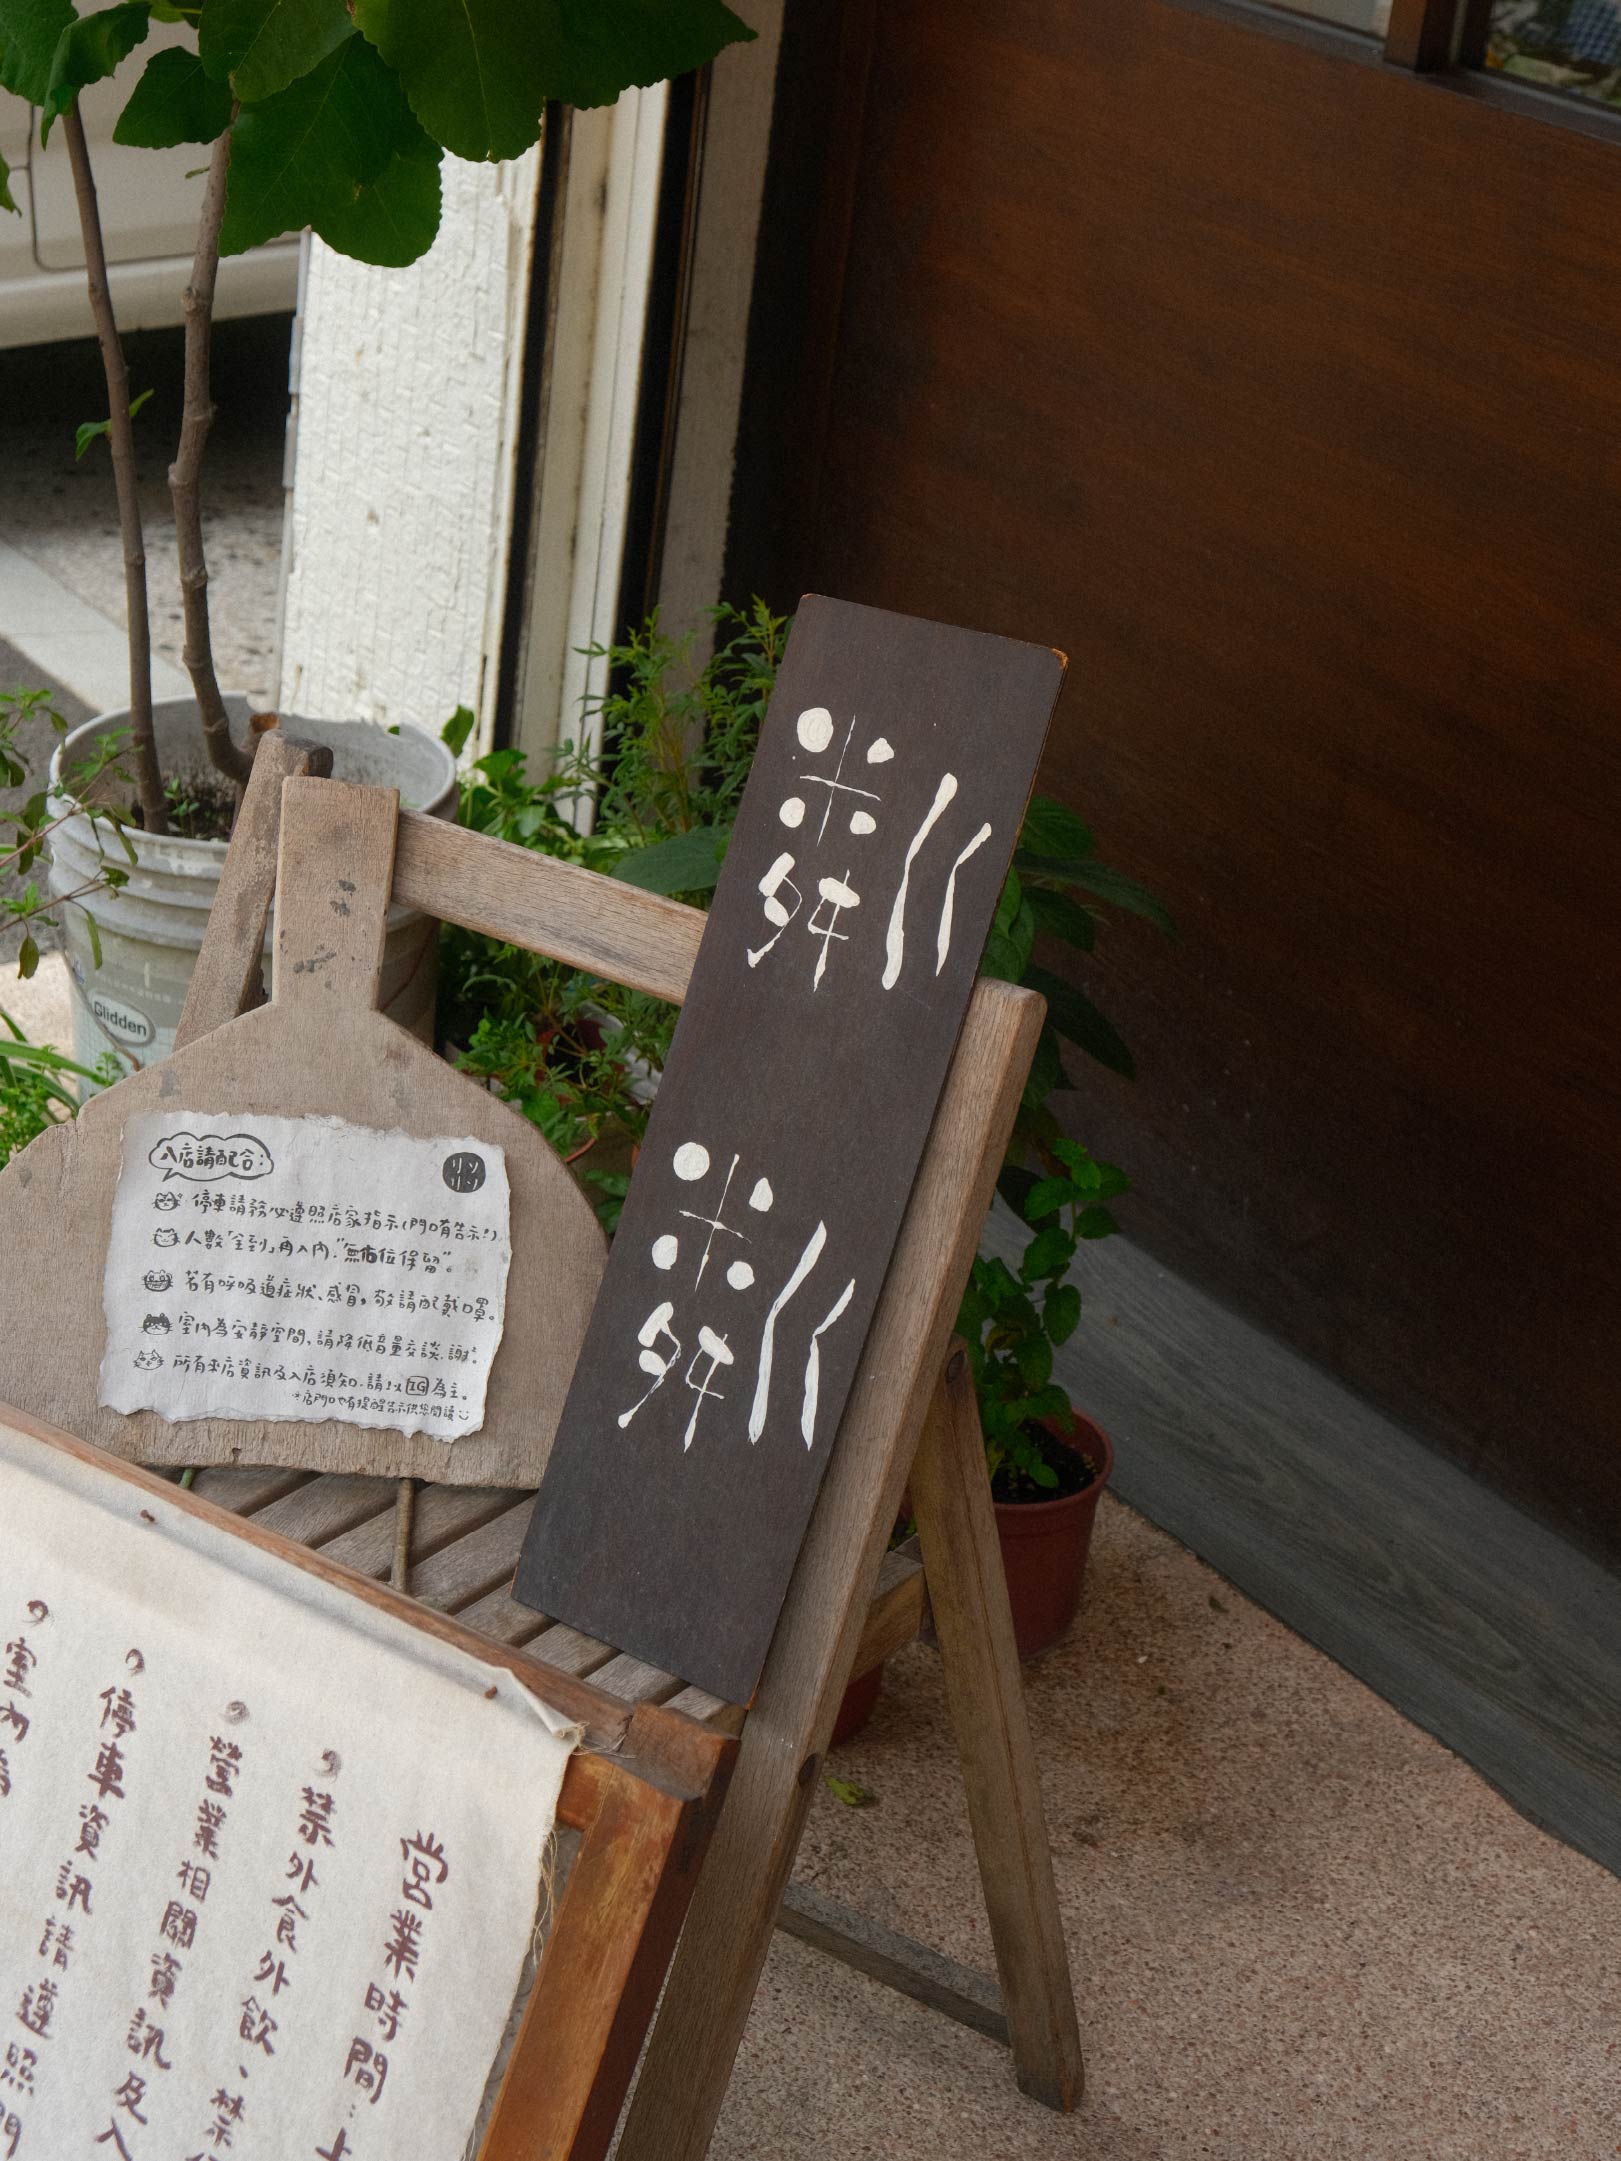 粼粼
Glidden
入店請配合:
停車請務必遵照店家指示(門口有告示!)
人數「全到」再入內."無佔位保留"。
若有呼吸道症狀、感冒,敬請配戴口罩。
室內為安靜空間,請降低音量交談.謝謝.
所有來店資訊及入店須知.請以IG為主。
*店門口也有提醒告示供您閱讀
營業時間:上
禁外食外飲、禁
營業相關資訊及入
停車資訊請遵照門
室內